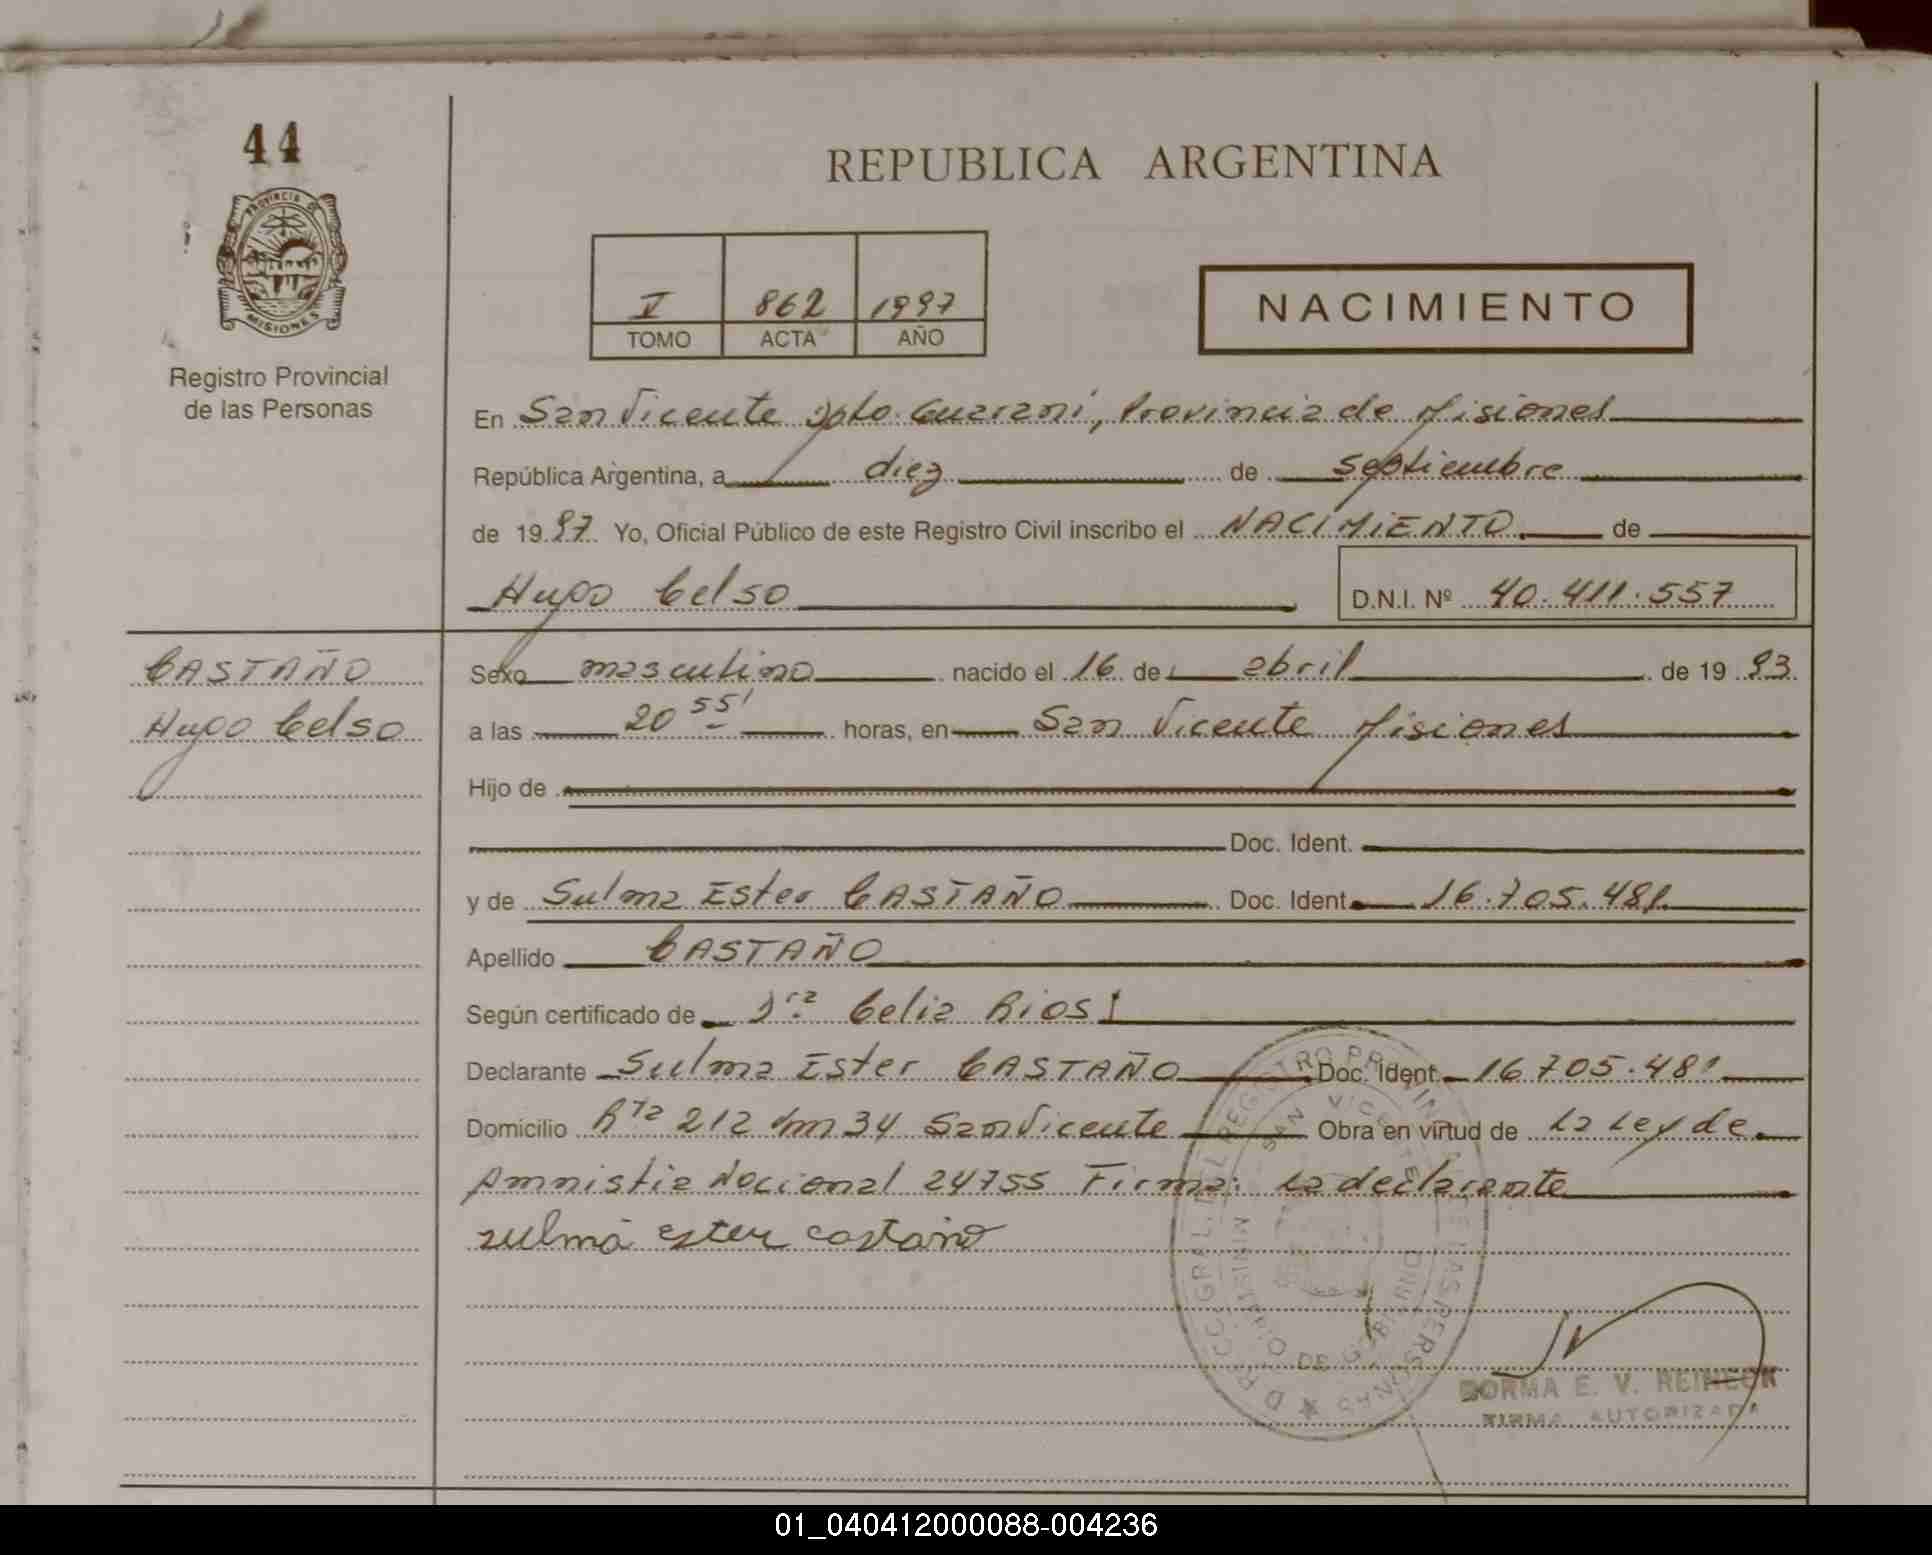 44
PROVINCIA DE
MISIONES
Registro Provincial
de las Personas
REPUBLICA ARGENTINA
V 862 1997
TOMO ACTA AÑO
NACIMIENTO
En San Vicente Dpto. Guaraní, Provincia de Misiones
República Argentina, a diez de septiembre
de 1997. Yo, Oficial Público de este Registro Civil inscribo el NACIMIENTO de
Hugo Celso D.N.I. Nº 40.411.557
CASTAÑO
Hugo Celso
Sexo masculino nacido el 16 de abril de 1993.
a las 20 55' horas, en San Vicente Misiones
Hijo de
Doc. Ident.
y de Sulma Ester CASTAÑO Doc. Ident. 16.705.481
Apellido CASTAÑO
Según certificado de Dra. Celia Rios
Declarante Sulma Ester CASTAÑO Doc. Ident. 16.705.481
Domicilio Rta 212 km 34 San Vicente Obra en virtud de La Ley de
Amnistia Nacional 24755 Firma: La declarante
zulma ester castaño
SAN VICENTE
NORMA E. V. REINECK
FIRMA AUTORIZADA
01_040412000088-004236